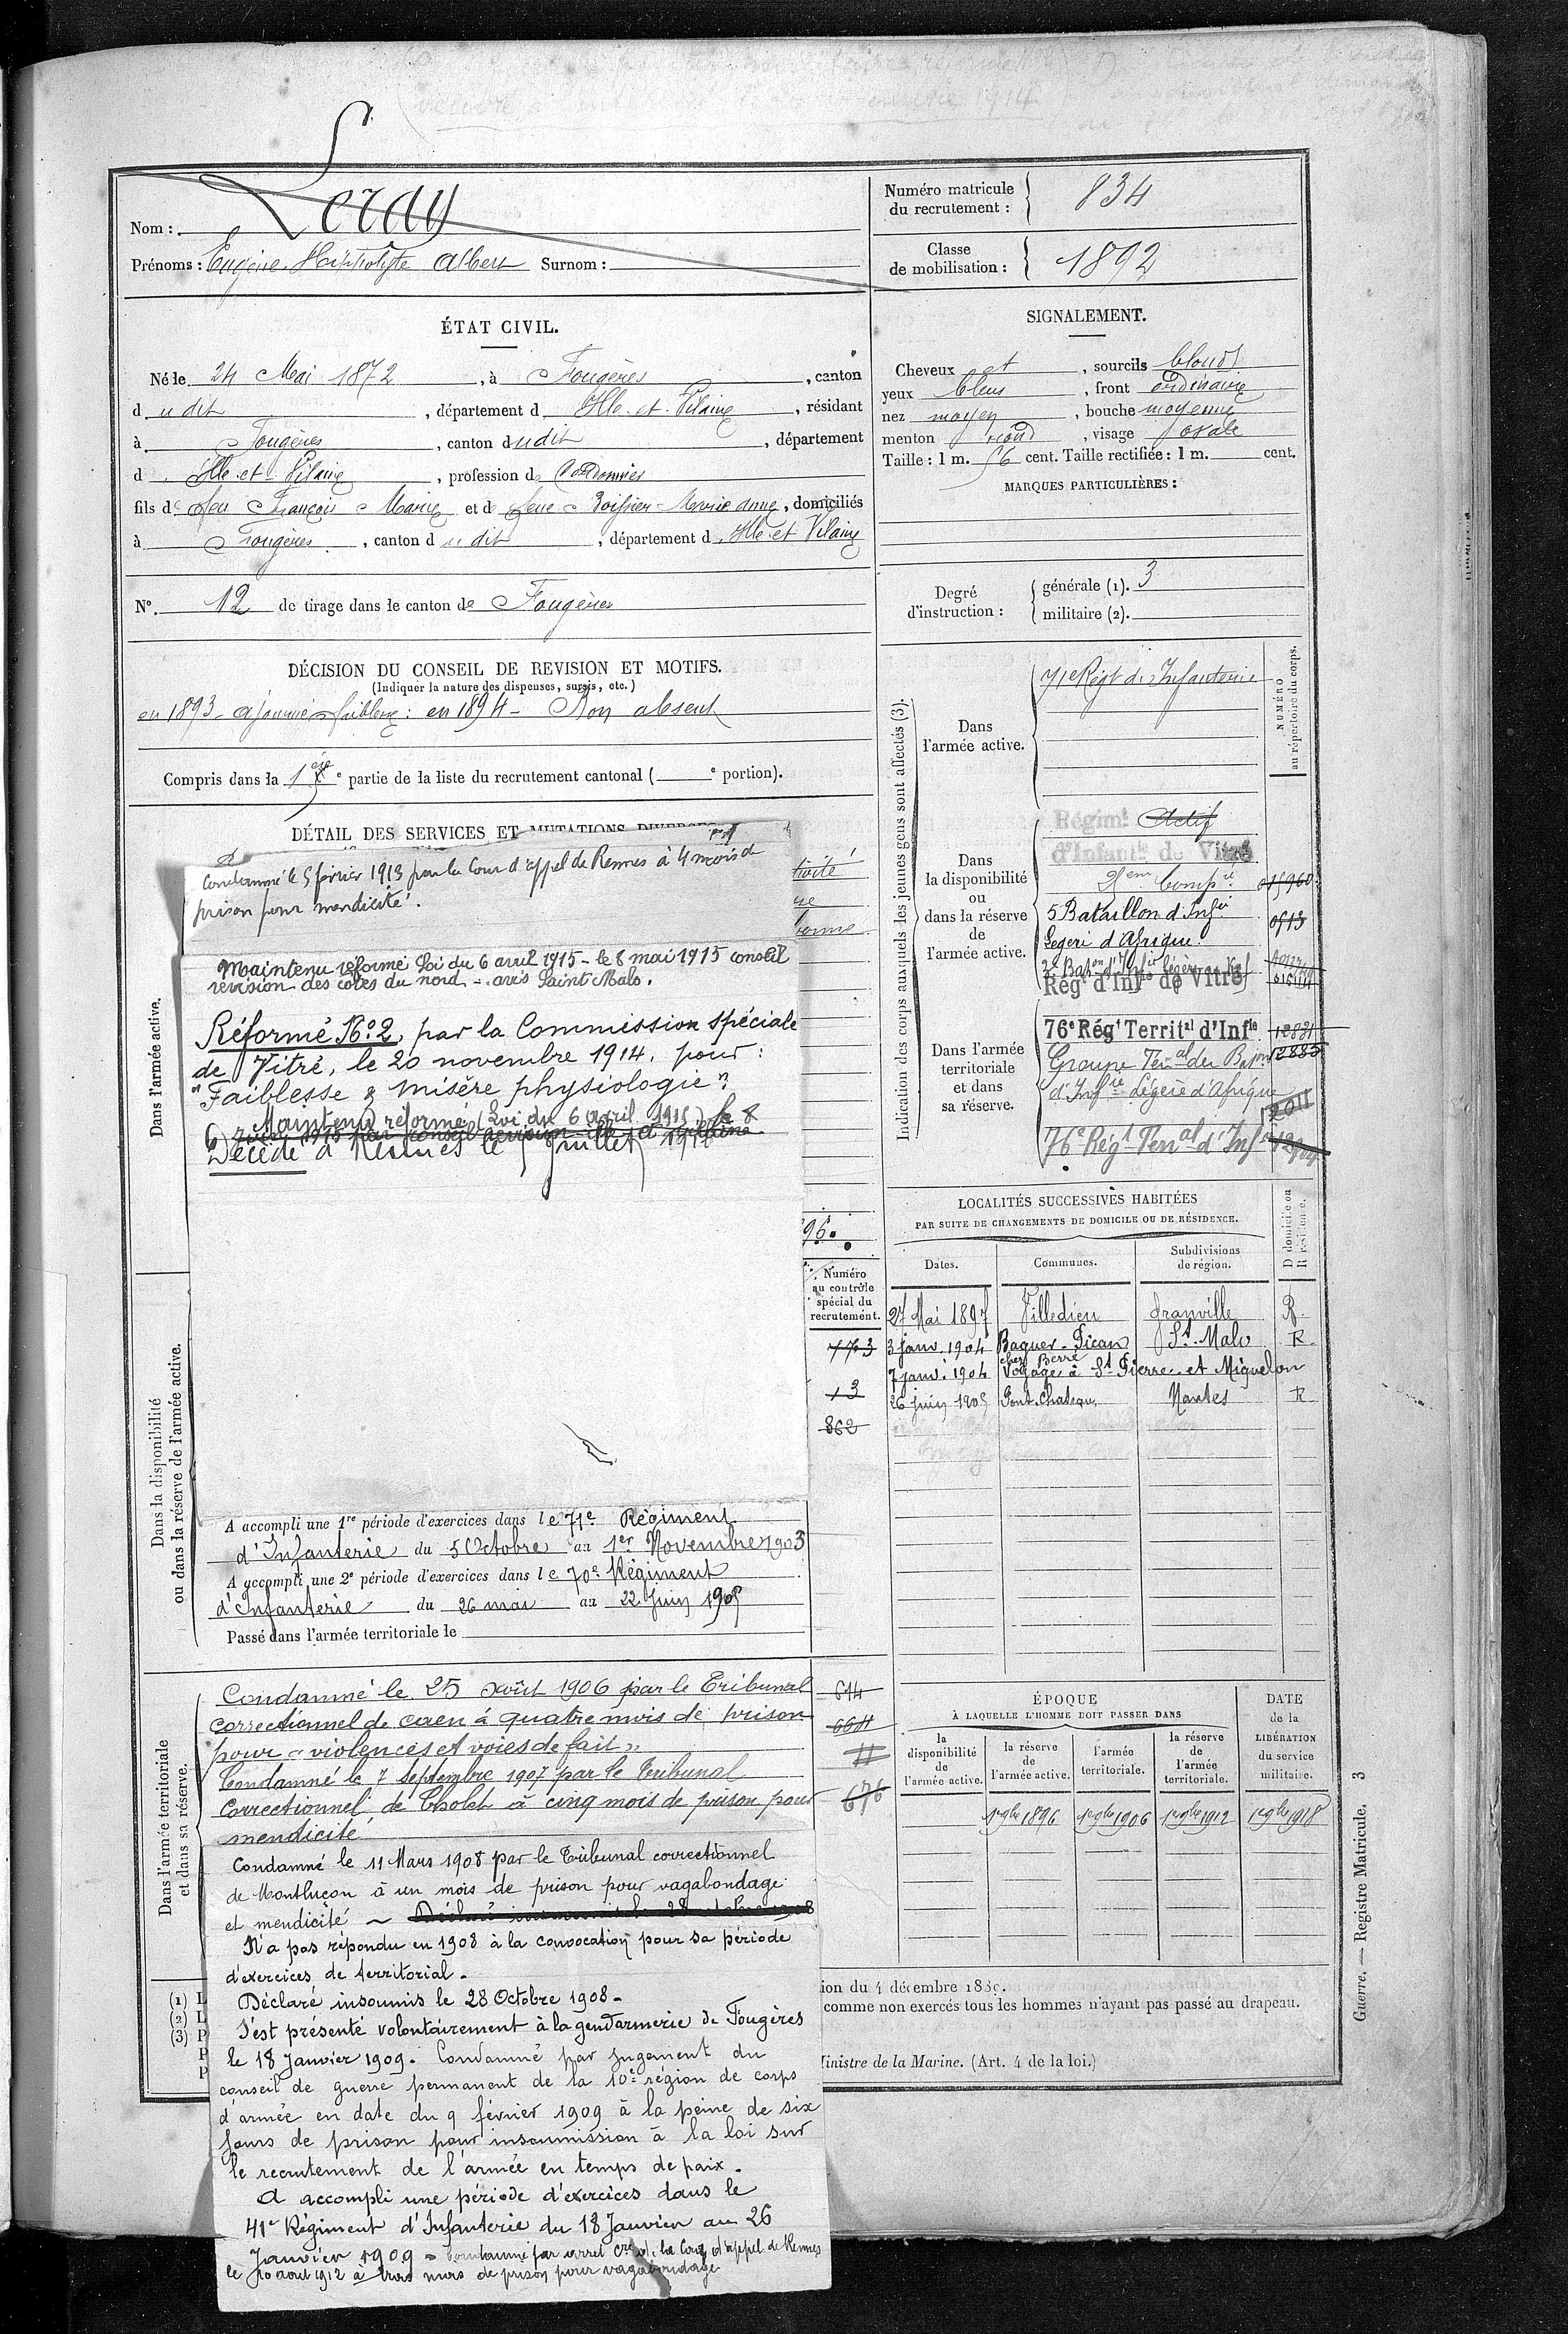 Nom : Leray
Prénoms : Eugène Hippolyte Albert Surnom :
Numéro matricule du recrutement : 834
Classe de mobilisation : 1892
ÉTAT CIVIL.
Né le 24 Mai 1872, à Fougères, canton
dudit, département d'Ille-et-Vilaine, résidant
à Fougères, canton dudit, département
d'Ille-et-Vilaine, profession de Cordonnier
fils de feu François Marie et de feue Marie Anne, domiciliés
à Fougères, canton dudit, département d'Ille-et-Vilaine
N° 12 de tirage dans le canton de Fougères
SIGNALEMENT.
Cheveux et, sourcils blonds
yeux bleus, front ordinaire
nez moyen, bouche moyenne
menton rond, visage ovale
Taille : 1 m. 56 cent. Taille rectifiée : 1 m. cent.
MARQUES PARTICULIÈRES :
Degré d'instruction :
générale (1). 3
militaire (2).
DÉCISION DU CONSEIL DE REVISION ET MOTIFS.
(Indiquer la nature des dispenses, sursis, etc.)
en 1893 - ajourné faiblesse : en 1894 - Bon absent
Compris dans la 1ère partie de la liste du recrutement cantonal ( e portion).
DÉTAIL DES SERVICES ET MUTATIONS DIVERSES
Dans l'armée active.
Condamné le 5 février 1913 par la Cour d'appel de Rennes à 4 mois de
prison pour mendicité.
Maintenu réformé Loi du 6 avril 1915 - le 8 mai 1915 conseil
révision des côtes du nord - avis Saint Malo.
Réformé N° 2, par la Commission spéciale
de Vitré, le 20 novembre 1914, pour :
"Faiblesse & misère physiologie"
Maintenu réformé (Loi du 6 avril 1915) le 8
Décédé à Rennes le 7 Juillet
Dans la disponibilité
ou dans la réserve de l'armée active.
A accompli une 1re période d'exercices dans le 71e Régiment
d'Infanterie du 5 Octobre au 1er Novembre 1903
A accompli une 2e période d'exercices dans le 70e Régiment
d'Infanterie du 26 mai au 22 Juin 1905
Passé dans l'armée territoriale le
Dans l'armée territoriale
et dans sa réserve.
Condamné le 25 août 1906 par le Tribunal
correctionnel de Caen à quatre mois de prison
pour "violences et voies de fait"
Condamné le 7 Septembre 1907 par le Tribunal
Correctionnel de Cholet à cinq mois de prison pour
mendicité
Condamné le 11 Mars 1908 par le Tribunal correctionnel
de Montluçon à un mois de prison pour vagabondage
et mendicité ~
N'a pas répondu en 1908 à la convocation pour sa période
d'exercices de territorial.
Déclaré insoumis le 28 Octobre 1908 -
S'est présenté volontairement à la gendarmerie de Fougères
le 18 Janvier 1909. Condamné par jugement du
conseil de guerre permanent de la 10e région de corps
d'armée en date du 9 février 1909 à la peine de six
jours de prison pour insoumission à la loi sur
le recrutement de l'armée en temps de paix.
A accompli une période d'exercices dans le
41e Régiment d'Infanterie du 18 Janvier au 26
Janvier 1909 - Condamné par arrêt de la Cour d'appel de Rennes
le 20 aout 1912 à trois mois de prison pour vagabondage
Numéro
au contrôle
spécial du
recrutement.
13
862
614
664
11
676
Indication des corps auxquels les jeunes gens sont affectés (3).
NUMÉRO
au répertoire du corps.
Dans
l'armée active.
71e Régt d'Infanterie
Dans
la disponibilité
ou
dans la réserve
de
l'armée active.
Régimt Actif
d'Infantie de Vitré
5 Bataillon d'Infie
Légère d'Afrique
0513
Régt d'Infie de Vitré
Dans l'armée
territoriale
et dans
sa réserve.
76e Régt Territal d'Infie
Groupe Teral des Batons
d'Infie légère d'Afrique
2011
76e Régt Teral d'Infie
LOCALITÉS SUCCESSIVES HABITÉES
PAR SUITE DE CHANGEMENTS DE DOMICILE OU DE RÉSIDENCE.
Dates. Communes. Subdivisions de région. D domicile ou R résidence.
27 Mai 1897 Villedieu Granville R.
3 janv. 1904 Baguer-Pican St. Malo R
chez Berré
7 janv. 1904 Voyage à St Pierre et Miquelon
26 juin 1905 Pont-Chateau Nantes R
ÉPOQUE
À LAQUELLE L'HOMME DOIT PASSER DANS
la disponibilité de l'armée active.
la réserve de l'armée active.
l'armée territoriale.
la réserve de l'armée territoriale.
DATE de la LIBÉRATION du service militaire.
1er 9bre 1896 1er 9bre 1906 1er 9bre 1912 1er 9bre 1918
ion du 4 décembre 1889.
comme non exercés tous les hommes n'ayant pas passé au drapeau.
Ministre de la Marine. (Art. 4 de la loi.)
Guerre. — Registre Matricule. 3